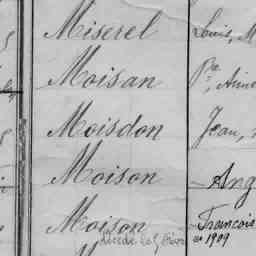 Miserel Louis, M
Moisan
Moisdon Jean,
Moison Ang
Moison François
1909